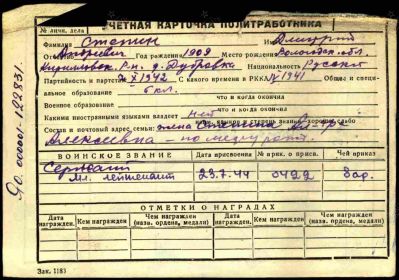 УЧЕТНАЯ КАРТОЧКА ПОЛИТРАБОТНИКА
№ личн. дела
Фамилия Степин Имя Дмитрий
Отчество Андреевич Год рождения 1909 Место рождения Вологодск. обл.
Кирилловск. р-н д. Дубровка Национальность Русский
Партийность и партстаж X 1942 С какого времени в РККА IV 1941 Общее и специ-
альное образование 6 кл.
что и когда окончил
Военное образование
что и когда окончил
Какими иностранными языками владеет нет
Состав и почтовый адрес семьи: жена Степина
Алексеевна - по месту рожд.
ВОИНСКОЕ ЗВАНИЕ Дата присвоения № прик. о присв. Чей приказ
Сержант
Мл. лейтенант 23.7.44 0422
ОТМЕТКИ О НАГРАДАХ
Дата награжден. Кем награжден Чем награжден (назв. ордена, медали) Дата награжден. Кем награжден Чем награжден (назв. ордена, медали)
Зак. 1183